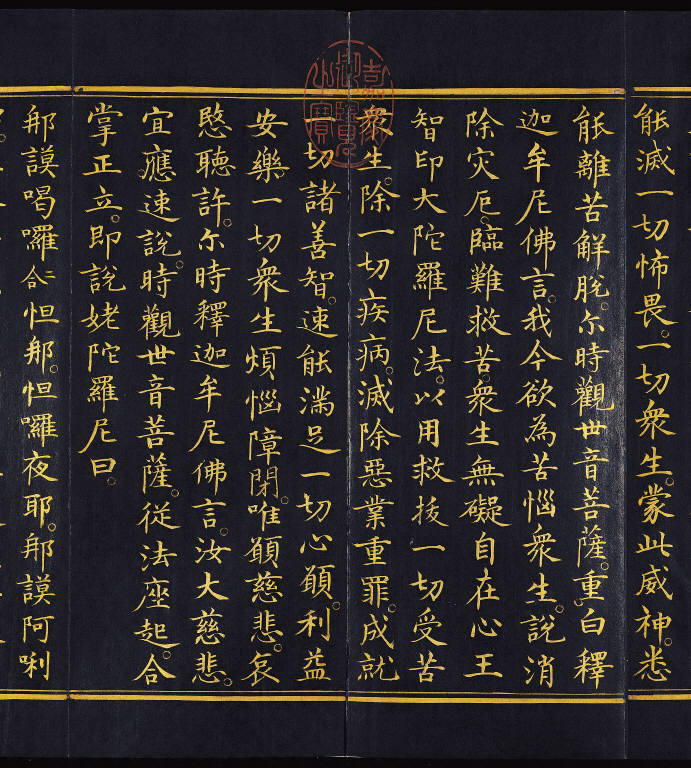 能滅一切怖畏。一切衆生。蒙此威神。悉
能離苦解脫。尒時觀世音菩薩。重白釋
迦牟尼佛言。我今欲為苦惱衆生。說消
除灾厄。臨難救苦。衆生無礙自在心王
智印大陀羅尼法。以用救拔一切受苦
衆生。除一切疾病。滅除惡業重罪。成就
一切諸善智。速能滿足一切心願。利益
安樂一切衆生煩惱障閉。唯願慈悲。哀
愍聽許。尒時釋迦牟尼佛言。汝大慈悲。
宜應速說。時觀世音菩薩。従法座起。合
掌正立。即說姥陀羅尼曰。
那謨喝囉二合怛那。怛囉夜耶。那謨阿唎